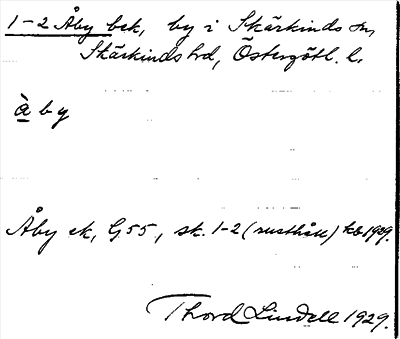 1-2 Åby bek, by i Skärkinds sn,
Skärkinds hd, Östergötl. l.
à b y
Åby ek, G55, sk. 1-2 (rusthåll) kb 1929.
Thord Lindell 1929.